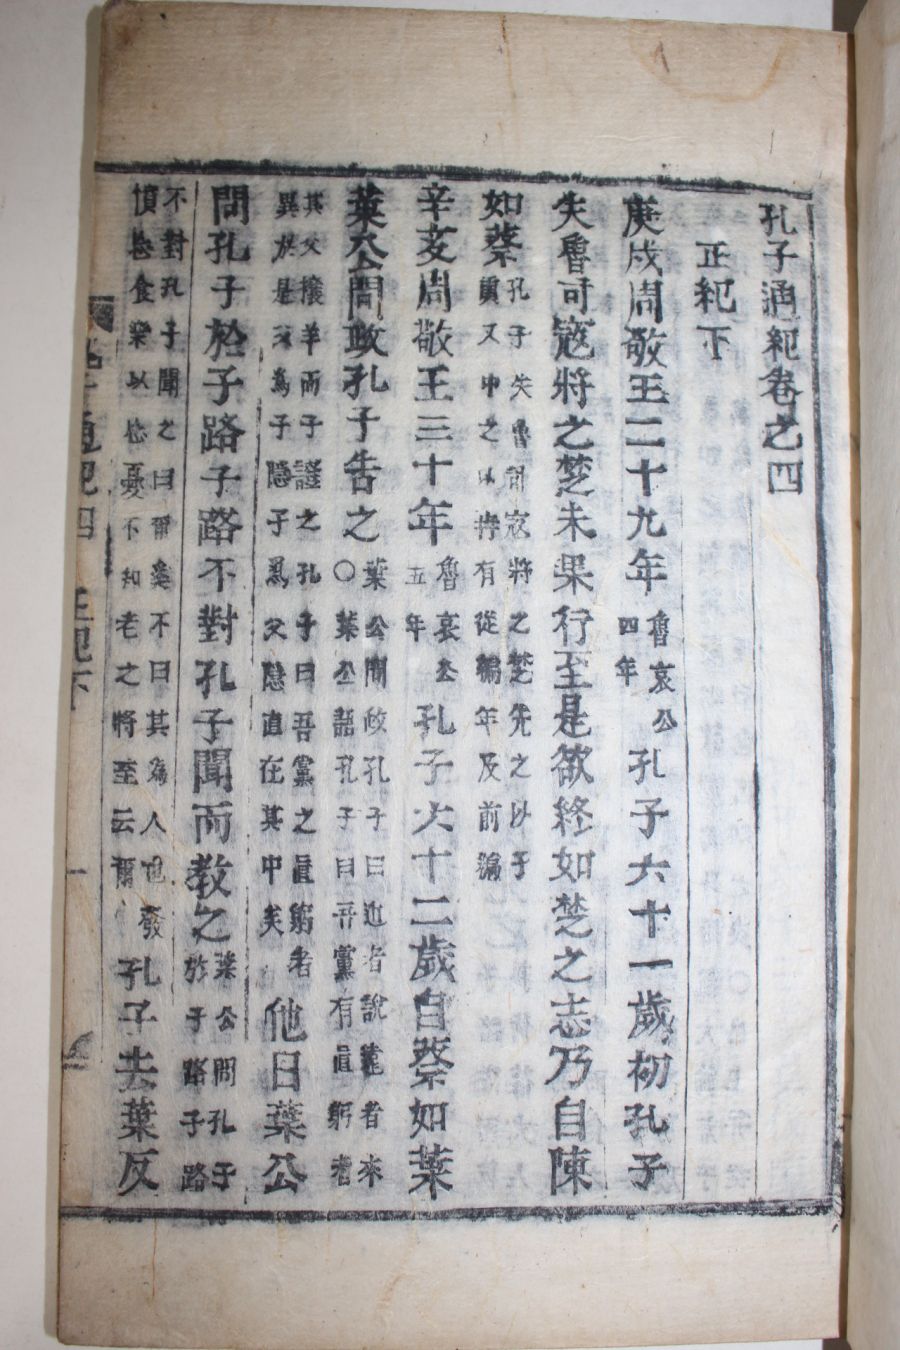 孔子通紀卷之四
正紀下
庚戌周敬王二十九年魯哀公四年孔子六十一歲初孔子
失魯司寇將之楚未果行至是欲終如楚之志乃自陳
如蔡孔子失魯司寇將之楚先之以子夏又申之以冉有從編年及前編
辛亥周敬王三十年魯哀公五年孔子六十二歲自蔡如葉
葉公問政孔子告之葉公問政孔子曰近者說遠者來○葉公語孔子曰吾黨有直躬者
其父攘羊而子證之孔子曰吾黨之直躬者異於是父爲子隱子爲父隱直在其中矣他日葉公
問孔子於子路子路不對孔子聞而教之葉公問孔子於子路子路
不對孔子聞之曰爾奚不曰其爲人也發憤忘食樂以忘憂不知老之將至云爾孔子去葉反
孔子通紀四 正紀下 一